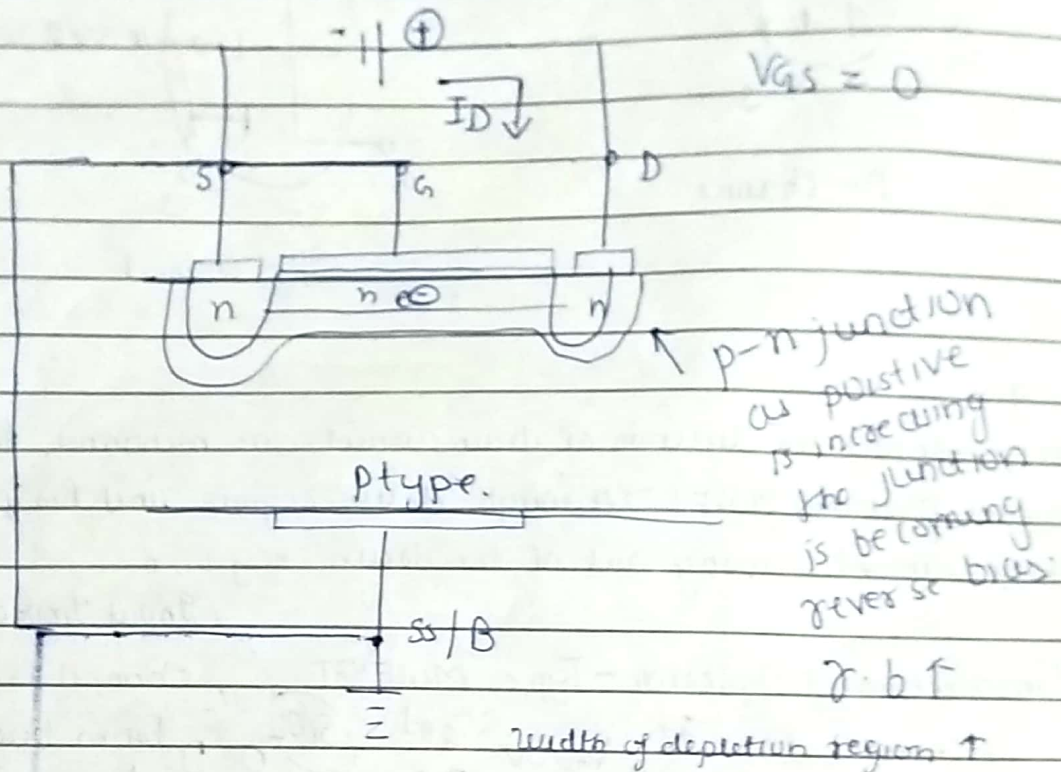 - +
ID
VGS = 0
S
G
D
n
n e⊖
n
p-n junction
as poistive
is increasing
the junction
is becoming
reverse bias.
Ptype.
SS/B
r.b↑
width of depletion region ↑